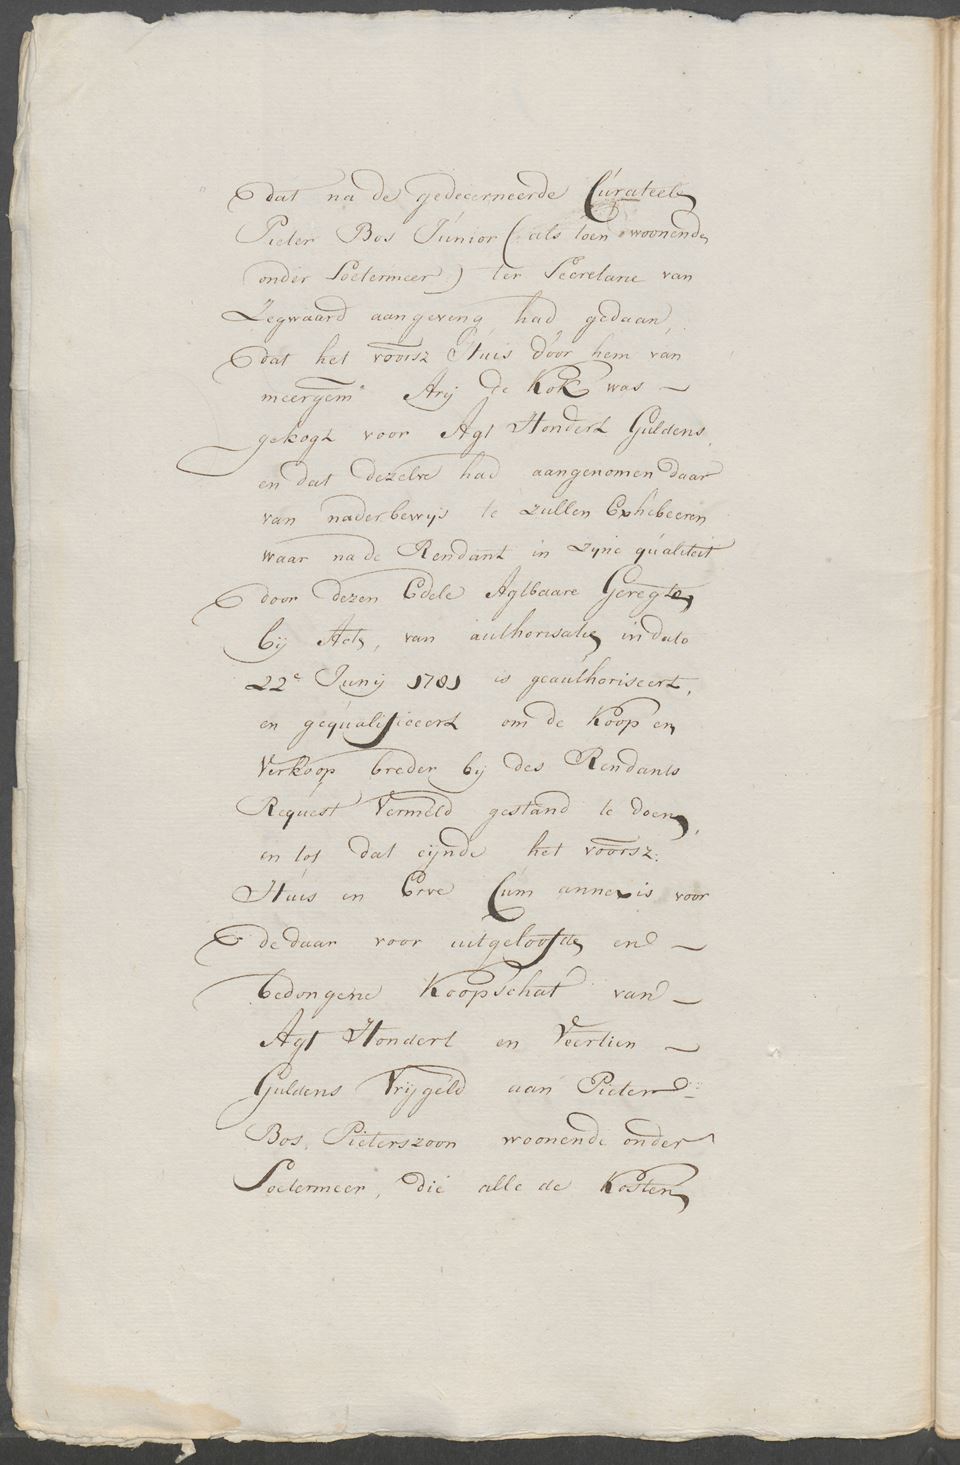 dat na de gedecerneerde Curateele
Pieter Bos Junior (als toen woonende
onder Soetermeer) ter Secretarie van
Zegwaard aangeving had gedaan,
dat het voorsz Huis door hem van
meergem Arij de Kok was –
gekogt voor Agt Hondert Guldens,
en dat dezelve had aangenomen daar
van nader bewijs te zullen Exhibeeren
waar na de Rendant in zyne qualiteit
door dezen Edele Agtbaare Geregte
bij Acte, van authorisatie in dato
22e Junij 1781 is geauthoriseert,
en gequalificeert om de Koop en
Verkoop breder bij des Rendants
Request Vermeld gestand te doen,
en tot dat eijnde het voorsz:
Huis en Erve Cum annexis voor
de daar voor uitgeloofde en –
bedongene Koopschat van –
Agt Hondert en Veertien –
Guldens Vrijgeld aan Pieter
Bos, Pieterszoon woonende onder
Soetermeer, die alle de Kosten